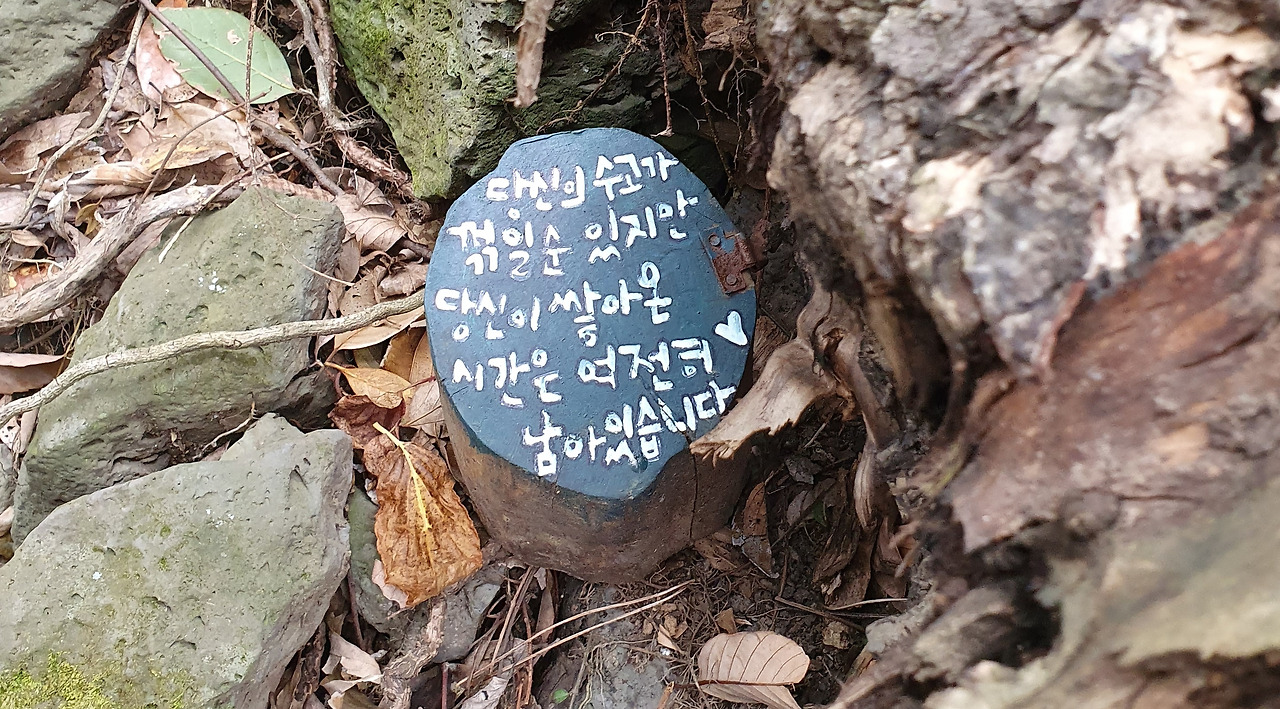 당신의 수고가
꺾일순 있지만
당신이 쌓아온
시간은 여전히
남아있습니다